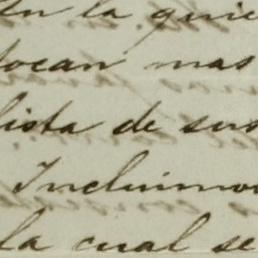 en la quie
tocan mas
lista de sus
Incluimos
la cual se